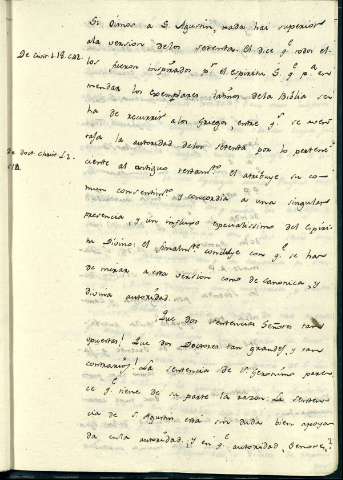 Si oimos a S. Agustin, nada hai superior
a la version de los setenta. El dice q.e todos el-
los fueron inspirados p.r el espiritu S. q.e p.a en-
mendar los exemplares latinos de la Biblia se
ha de recurrir a los Griegos, entre q.e se aven-
taja la autoridad de los setenta por lo pertene-
ciente al antiguo testam.to El atribuye su co-
mun consentim.to y concordia a una singular
presencia, y un influxo especialissimo del Espiri-
tu Divino: el finalm.te concluye con q.e se han
de mirar a esta version como de canonica, y
divina autoridad.
Que dos sentencias Señores tan
opuestas! Que dos Doctores tan grandes, y tan
contrarios! La sentencia de S. Geronimo pare-
ce q.e tiene de su parte la razon: La senten-
cia de S. Agustin está sin duda bien apoya-
da en la autoridad, y en q.e autoridad,
De Civit. l. 18. c. 42.
De doct. christ. l. 2.